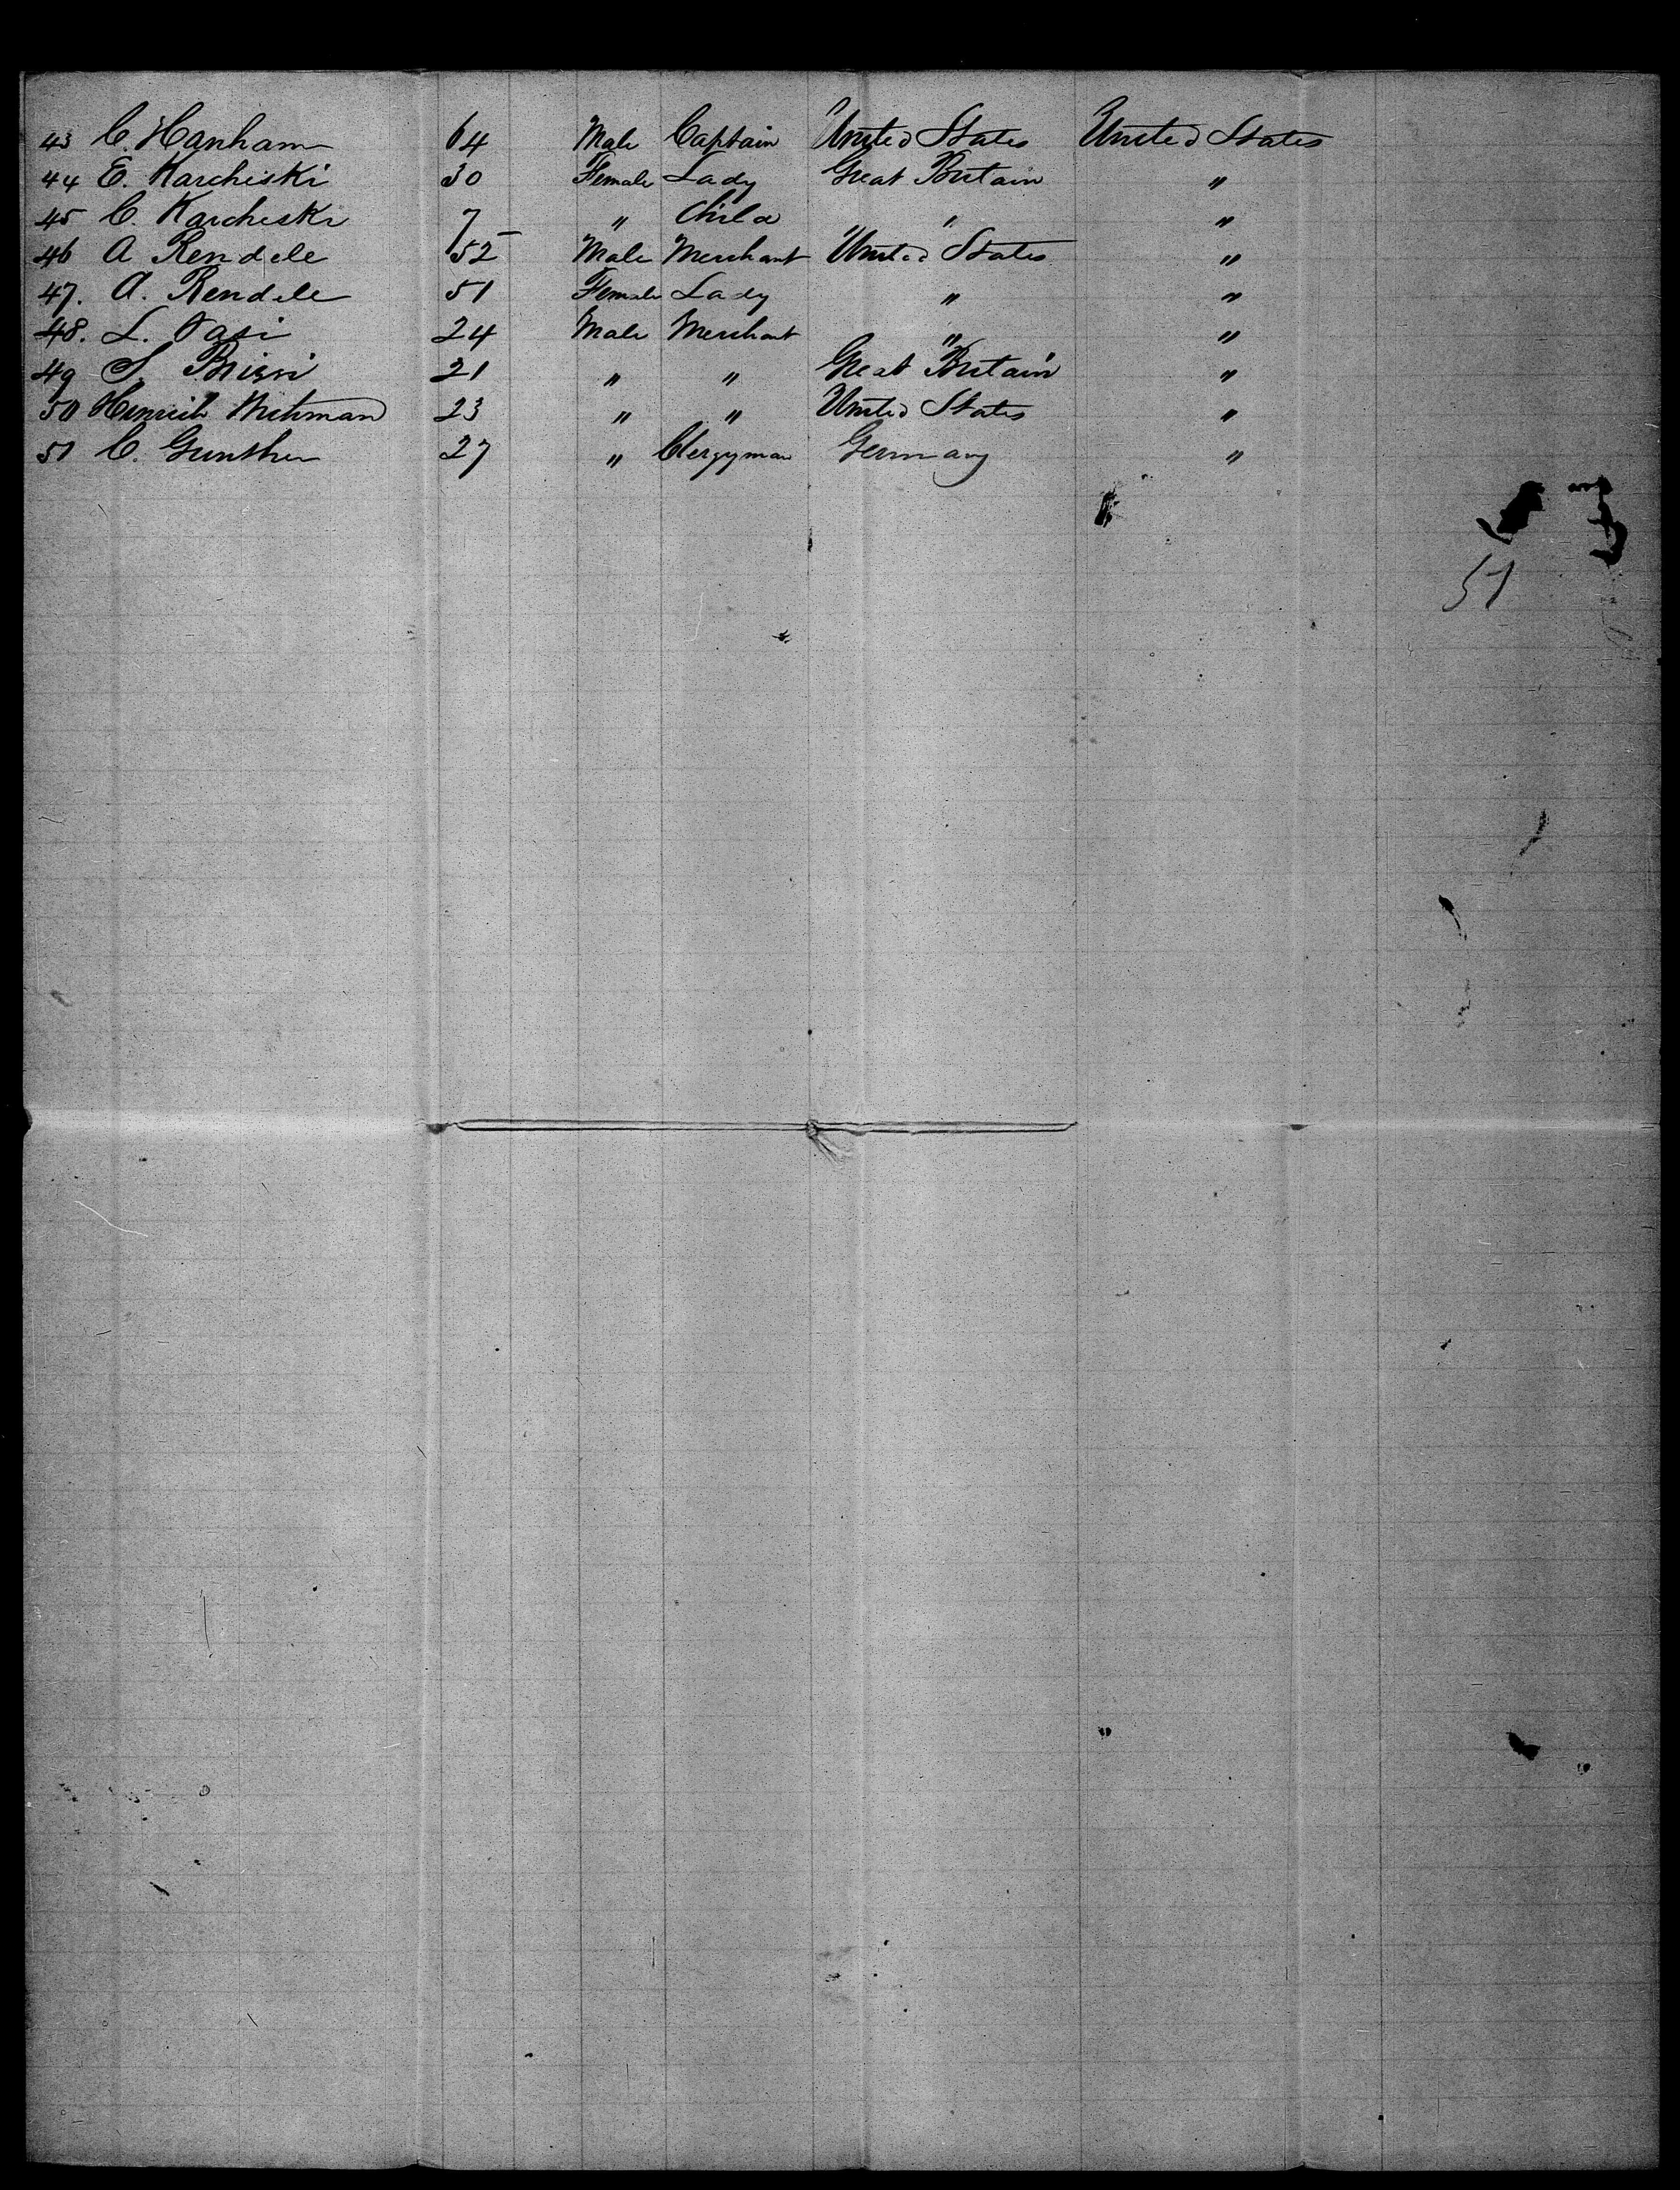 43 C. Hanham 64 Male Captain United States United States
44 E. Karcheski 30 Female Lady Great Britain "
45 C. Karcheski 7 " Child " "
46 A Rendele 52 Male Merchant United States "
47. A. Rendele 51 Female Lady " "
48. L. 24 Male Merchant " "
49 S. 21 " " Great Britain "
50 Heinrich 23 " " United States "
51 C. Gunther 27 " Clergyman Germany "
51